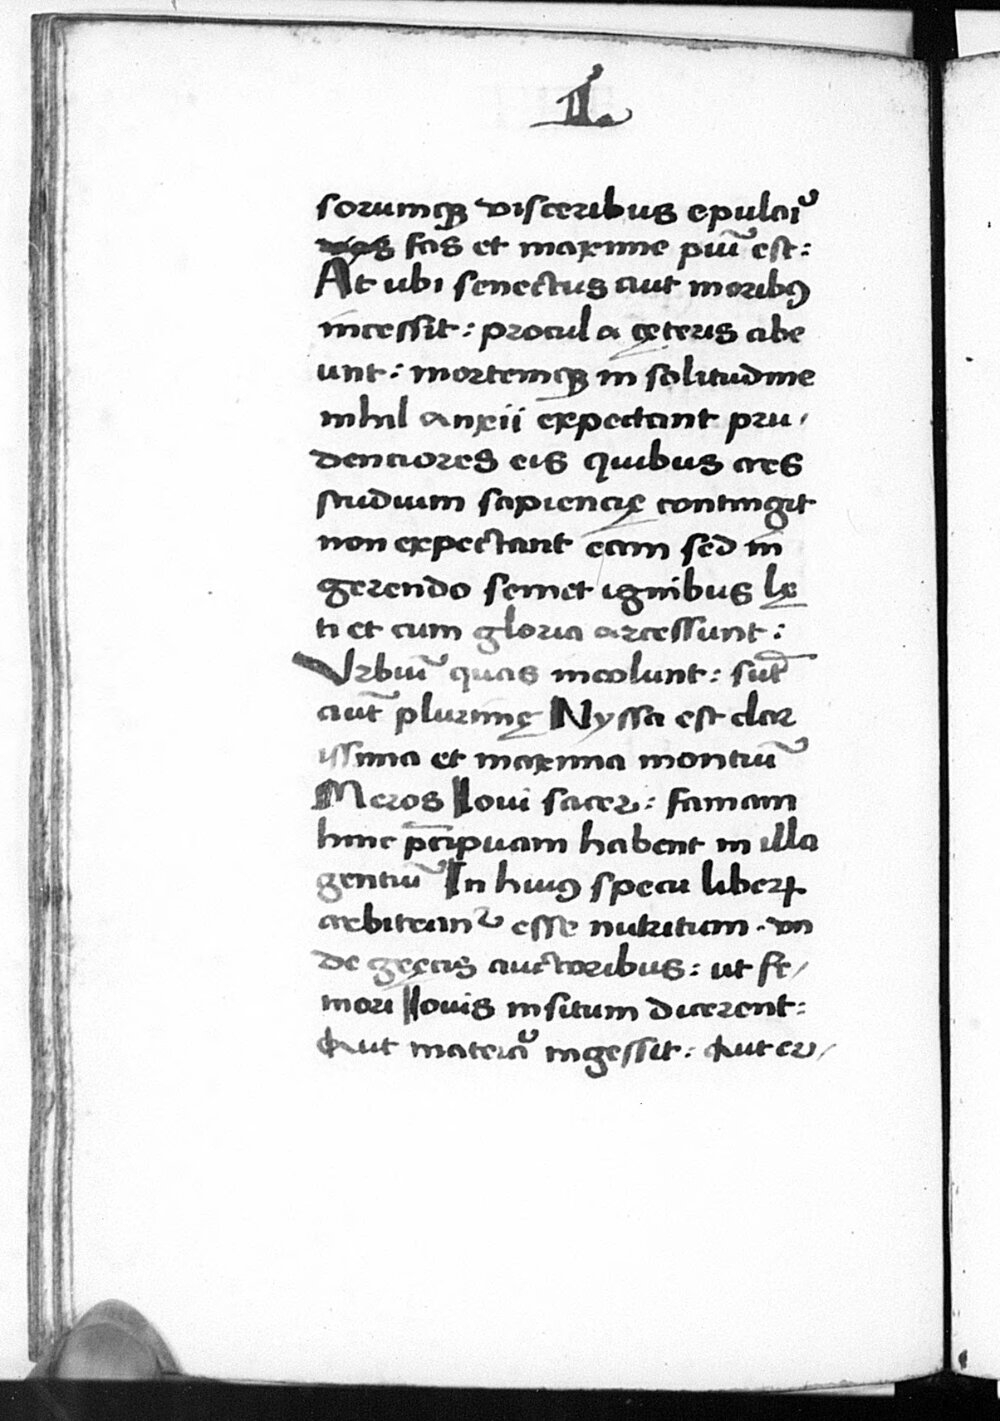 L
sorumqꝫ visceribus epulaıͧ
fas et maxime piū est:
At ubi senectus aut moribꝰ
incessit: procul a cęteris abe
unt: mortemqꝫ in solitudine
nihil anxii expectant pru/
dentiores eis quibus ars
studium sapiencię contingit
non expectant eam sed in
gerendo semet ignibus lę
ti et cum gloria arcessunt:
Vrbiū quas incolunt: sūt
aut̄ plurimę Nyssa est clar
issima et maxima montiū
Meros Ioui sacer: famam
hinc p̄cipuam habent in illa
gentiū In huiꝰ specu liberꝝ
arbitranᷣ esse nutritum. vn
de gręcis auctoribus: ut fe/
mori Iouis insitum dicerent:
Aut materiā ingessit: Aut er/